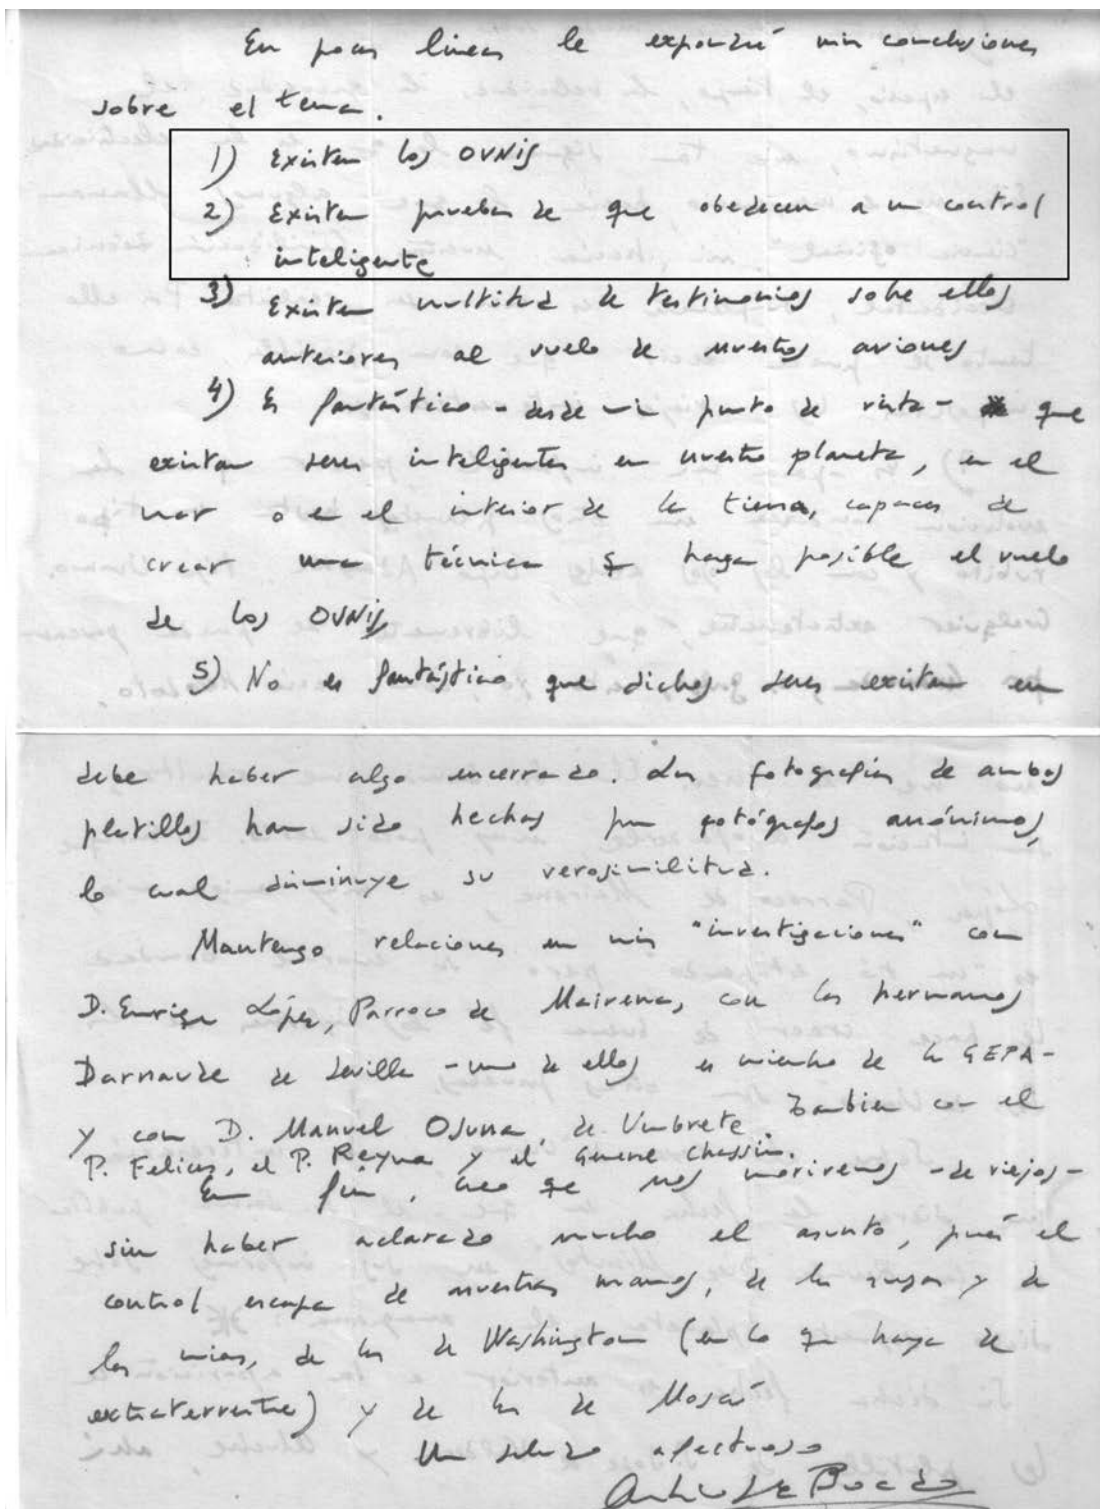 En pocas lineas le expondré mis conclusiones
sobre el tema.
1) Existen los OVNIS
2) Existen pruebas de que obedecen a un control
inteligente
3) Existen multitud de testimonios sobre ellos
anteriores al vuelo de nuestros aviones
4) Es fantástico - desde mi punto de vista - que
existan seres inteligentes en nuestro planeta, en el
mar o en el interior de la tierra, capaces de
crear una técnica q haga posible el vuelo
de los OVNIS
5) No es fantástico que dichos seres existan en
debe haber algo encerrado. Las fotografías de ambos
platillos han sido hechas por fotógrafos anónimos,
lo cual disminuye su verosimilitud.
Mantengo relaciones en mis "investigaciones" con
D. Enrique López, Parroco de Mairena, con los hermanos
Darnaude de Sevilla - uno de ellos es miembro de la GEPA -
y con D. Manuel Osuna, de Umbrete. Tambien con el
P. Felices, el P. Reyna y el General Chassin.
En fin, creo que nos moriremos - de viejos -
sin haber aclarado mucho el asunto, pues el
control escapa de nuestras manos, de las suyas y de
las mias, de las de Washington (en lo que haya de
extraterrestre) y de las de Moscú
Un saludo afectuoso